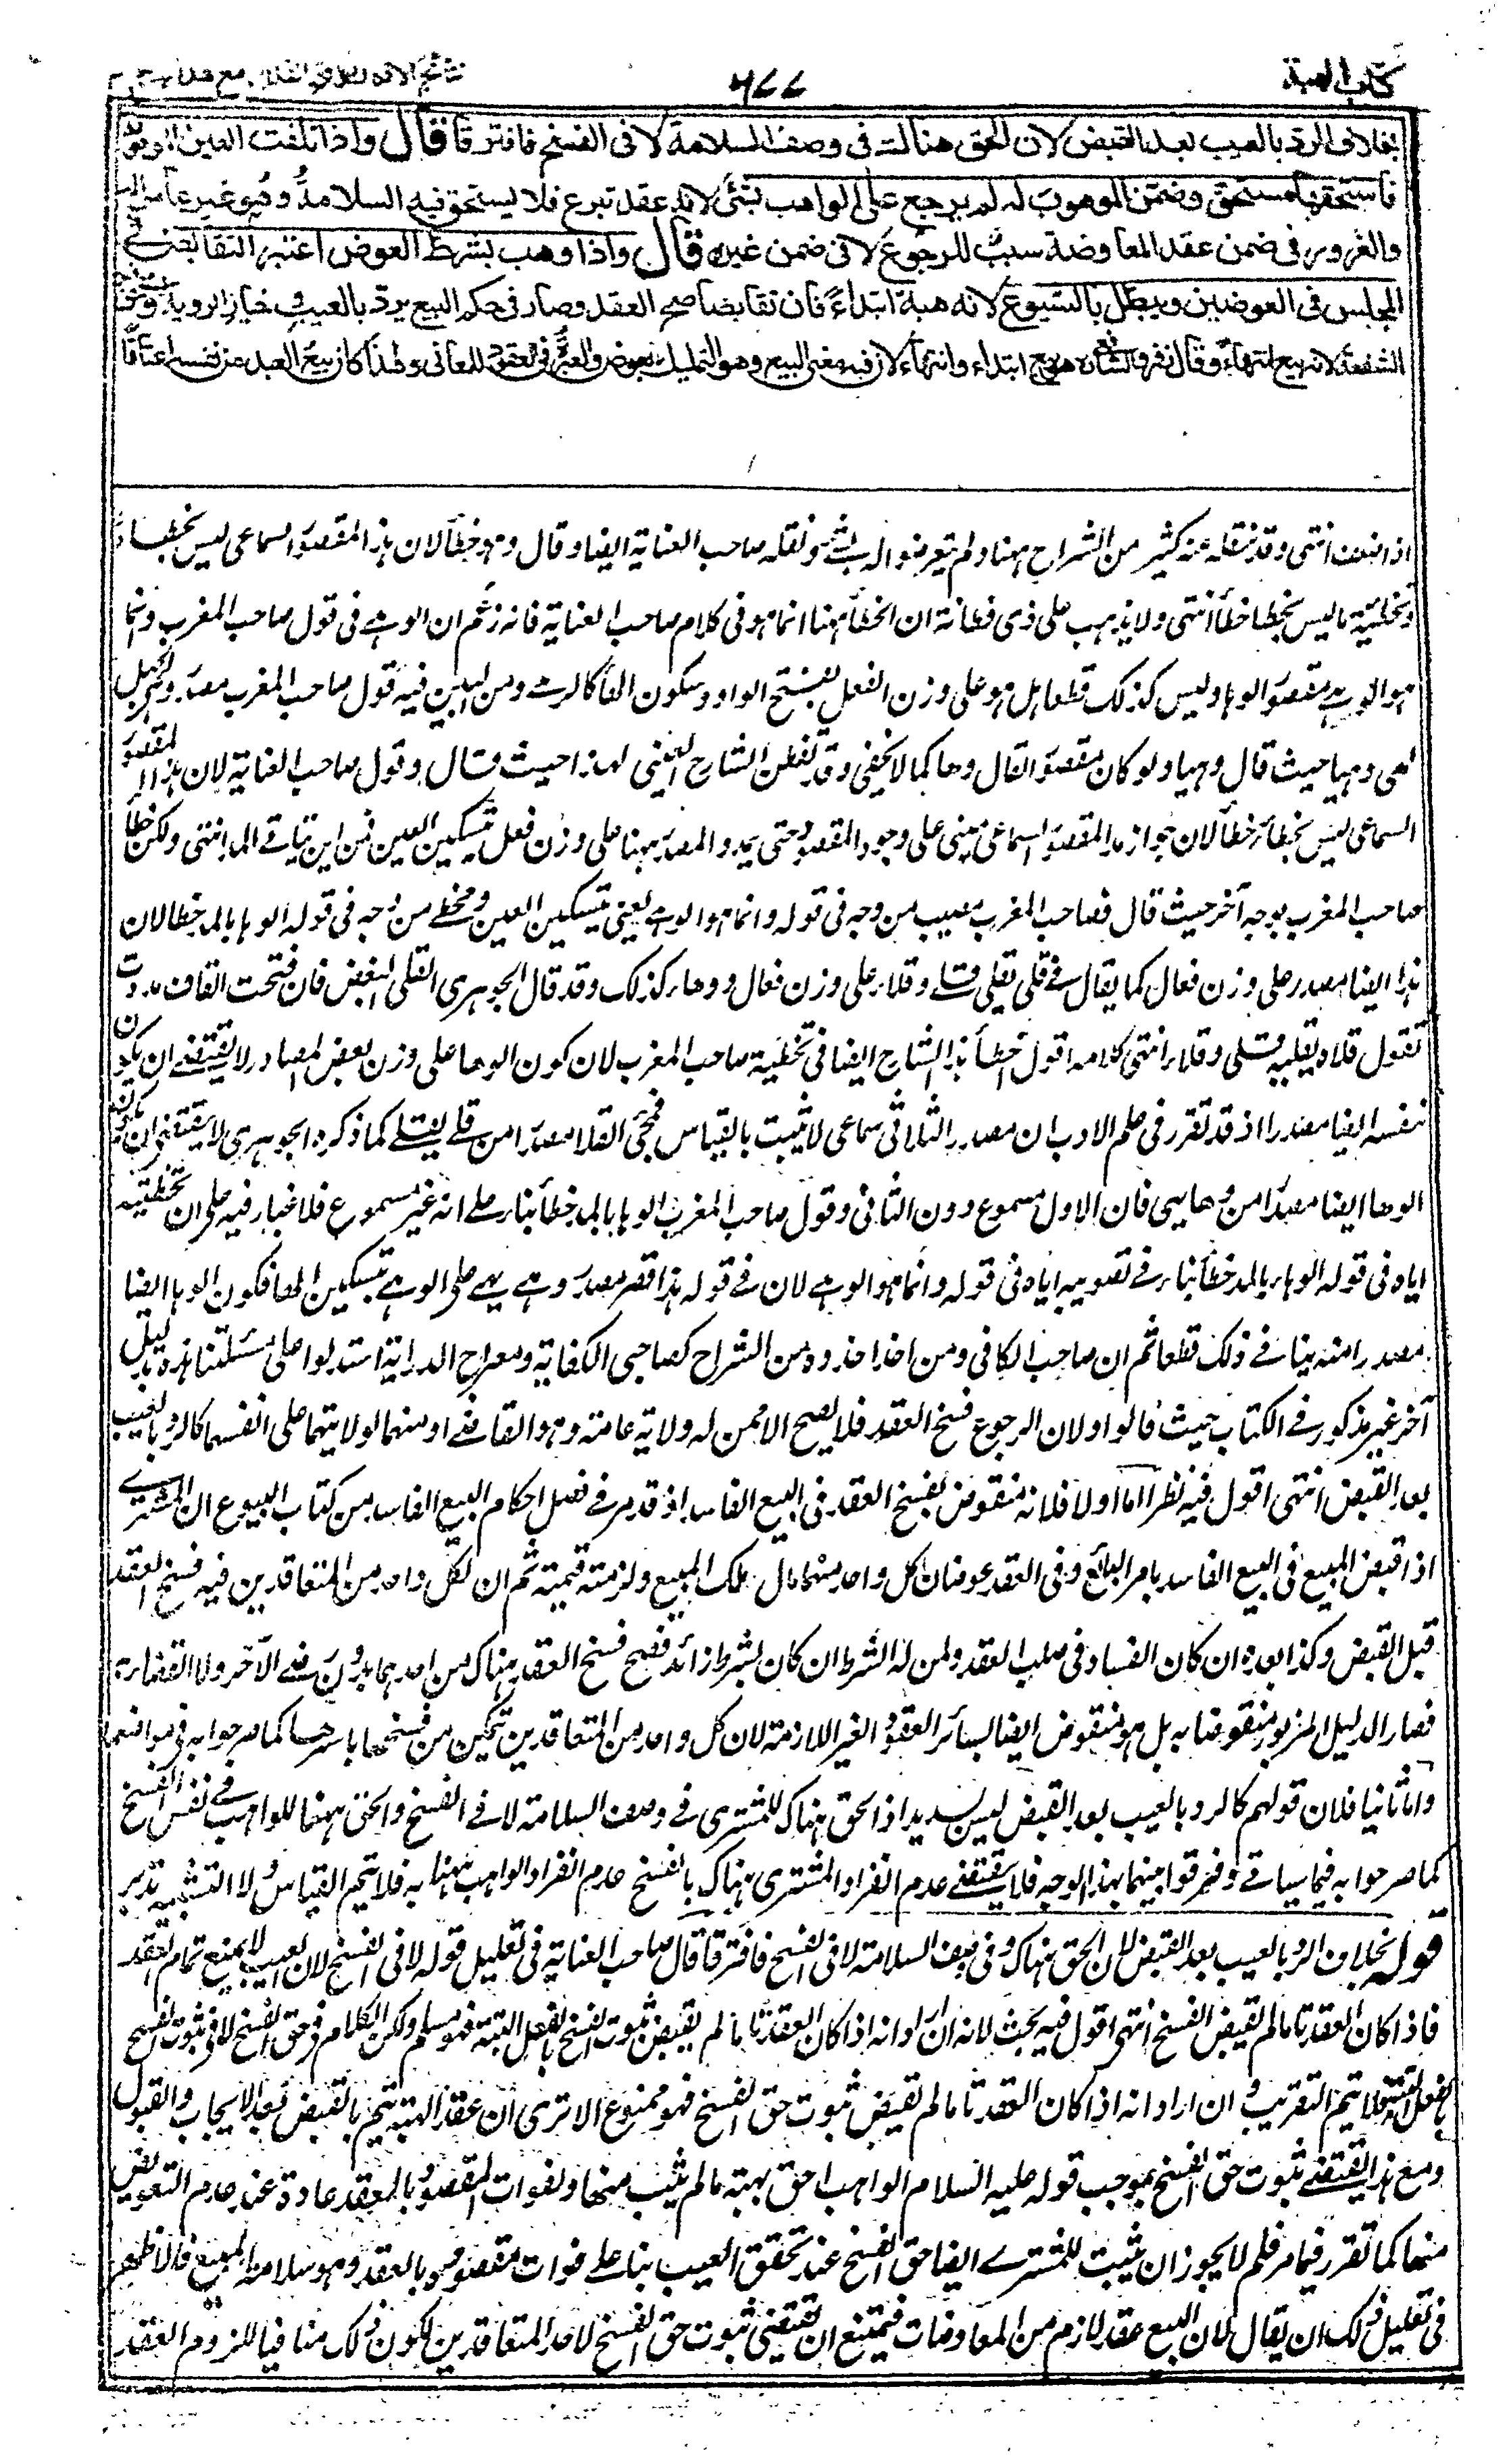 كتاب الهبة
٦٧٧
نتائج الافكار
بخلاف الرد بالعيب بعد القبض لان الحق هناك في وصف السلامة لا في الفسخ فافترقا قال واذا تلفت العين الموهوبة
فاستحقها مستحق وضمن الموهوب له لم يرجع على الواهب بشئ لانه عقد تبرع فلا يستحق فيه السلامة وهو غير عامل له
والغرور في ضمن عقد المعاوضة سبب للرجوع لا في ضمن غيره قال واذا وهب بشرط العوض اعتبر التقابض في
المجلس في العوضين ويبطل بالشيوع لانه هبة ابتداء فان تقابضا صح العقد وصار في حكم البيع يرد بالعيب وخيار الروية
الشفعة لانه بيع انتهاء وقال زفر والشافعي هو بيع ابتداء وانتهاء لان فيه معنى البيع وهو التمليك بعوض والعبرة في العقود للمعاني ولهذا كان بيع العبد من نفسه اعتاقا
اذا ضعف انتهى وقد نقله عنه كثير من الشراح ههنا ولم يتعرضوا له بشئ ونقله صاحب العناية ايضا وقال وهو خطأ لان هذا المقصور السماعي ليس بخطأ
وتخطئة ما ليس بخطأ خطأ انتهى ولا يذهب على ذي فطانة ان الخطأ ههنا انما هو في كلام صاحب العناية فانه زعم ان الوهي في قول صاحب المغرب وانما
هو الوهي مقصور الوها وليس كذلك قطعا بل هو على وزن الفعل بفتح الواو وسكون الها كالرمي ومن البين فيه قول صاحب المغرب مصدر
وهى وهيا حيث قال وهيا ولو كان مقصورا لقال وها كما لا يخفى وقد تفطن الشارح العيني لهذا حيث قال وقول صاحب العناية لان هذا المقصور
السماعي ليس بخطأ خطأ لان جواز مد المقصور السماعي مبني على وجود المقصور حتى يمد والمصدر ههنا على وزن فعل بتسكين العين فمن اين ياتي المد انتهى ولكن خطأ
صاحب المغرب بوجه آخر حيث قال فصاحب المغرب مصيب من وجه في قوله وانما هو الوهي يعني بتسكين العين ومخطئ من وجه في قوله الوها بالمد خطأ لان
هذا ايضا مصدر على وزن فعال كما يقال في قلى يقلي قلى وقلاء على وزن فعال ووهاء كذلك وقد قال الجوهري القلى البغض فان فتحت القاف مددت
تقول قلاه يقليه قلى وقلاء انتهى كلامه اقول اخطأ هذا الشارح ايضا في تخطئة صاحب المغرب لان كون الوها على وزن بعض المصادر لا يقتضي ان يكون
نفسه ايضا مصدرا اذ قد تقرر في علم الادب ان مصدر الثلاثي سماعي لا يثبت بالقياس فمجئ القلا مصدرا من قلى يقلي كما ذكره الجوهري لا يقتضي ان يكون
الوها ايضا مصدرا من وها يهي فان الاول مسموع دون الثاني وقول صاحب المغرب الوها بالمد خطأ بناء على انه غير مسموع فلا غبار فيه على ان تخطئته
اياه في قوله الوهاء بالمد خطأ ينافي تصويبه اياه في قوله وانما هو الوهي لان في قوله هذا قصر مصدر وهى يهي على الوهي بتسكين الها فكون الوها ايضا
مصدرا منه ينافي ذلك قطعا ثم ان صاحب الكافي ومن اخذ اخذوه من الشراح كصاحبي الكفاية ومعراج الدراية استدلوا على مسئلتنا هذه بدليل
آخر غير مذكور في الكتاب حيث قالوا ولان الرجوع فسخ العقد فلا يصح الا ممن له ولاية عامة وهو القاضي او منهما لولايتهما على انفسهما كالرد بالعيب
بعد القبض انتهى اقول فيه نظر اما اولا فلانه منقوض بفسخ العقد في البيع الفاسد اذ قد مر في فصل احكام البيع الفاسد من كتاب البيوع ان المشتري
اذا قبض المبيع في البيع الفاسد بامر البائع وفي العقد عوضان كل واحد منهما مال ملك المبيع ولزمته قيمته ثم ان لكل واحد من المتعاقدين فيه فسخ العقد
قبل القبض وكذا بعده ان كان الفساد في صلب العقد ولمن له الشرط ان كان بشرط زائد فصح فسخ العقد هناك من احدهما بدون رضى الآخر ولا القضاء
فصار الدليل المزبور منقوضا به بل هو منقوض ايضا بسائر العقود الغير اللازمة لان كل واحد من المتعاقدين يتمكن من فسخها باسرها كما صرحوا به في مواضعها
واما ثانيا فلان قولهم كالرد بالعيب بعد القبض ليس بسديد اذ الحق هناك للمشتري في وصف السلامة لا في الفسخ والحق ههنا للواهب في نفس الفسخ
كما صرحوا به فيما سياتي وفرقوا بينهما بهذا الوجه فلا يقتضي عدم انفراد المشتري هناك بالفسخ عدم انفراد الواهب ههنا به فلا يتم القياس ولا التشبيه تدبر
قوله بخلاف الرد بالعيب بعد القبض لان الحق هناك في وصف السلامة لا في الفسخ فافترقا قال صاحب العناية في تعليل قوله لا في الفسخ لان العيب لا يمنع تمام العقد
فاذا كان العقد تاما لم يقتض الفسخ انتهى اقول فيه بحث لانه ان اراد انه اذا كان العقد تاما لم يقتض ثبوت الفسخ بالفعل البتة فهو مسلم ولكن الكلام في حق الفسخ لا في ثبوت الفسخ
بالفعل البتة فلا يتم التقريب وان اراد انه اذا كان العقد تاما لم يقتض ثبوت حق الفسخ فهو ممنوع الا ترى ان عقد الهبة يتم بالقبض بعد الايجاب والقبول
ومع هذا يقتضي ثبوت حق الفسخ بموجب قوله عليه السلام الواهب احق بهبته ما لم يثب منها ولفوات المقصود بالعقد عادة عند عدم التعويض
منها كما تقرر فيما مر فلم لا يجوز ان يثبت للمشتري ايضا حق الفسخ عند تحقق العيب بناء على فوات مقصوده بالعقد وهو سلامة المبيع فالاظهر
في تعليل ذلك ان يقال لان البيع عقد لازم من المعاوضات فيمتنع ان يقتضي ثبوت حق الفسخ لاحد المتعاقدين لكون ذلك منافيا للزوم العقد